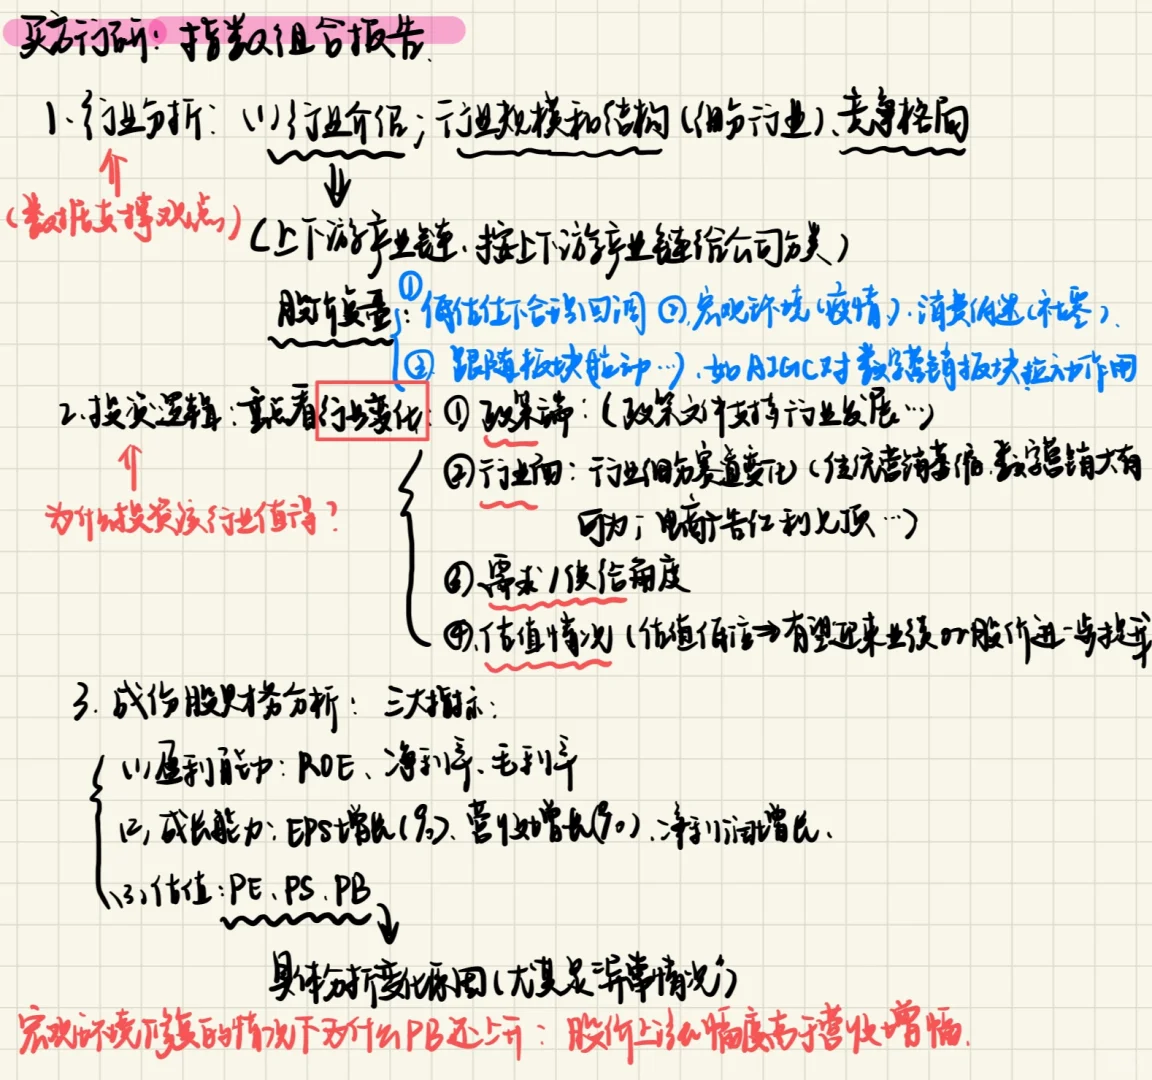 买方行研：指数组合报告
1. 行业分析：(1) 行业介绍；行业规模和结构(细分行业)、竞争格局
(数据支撑观点)
(上下游产业链、按上下游产业链给公司分类)
股价复盘：① 低估值下合理回调 ② 宏观环境(疫情)、消费促进(社零)、
③ 跟随板块(拉动…)、如AIGC对数字营销板块拉动作用
2. 投资逻辑：重点看行业变化：① 政策端：(政策文件支持行业发展…)
② 行业面：行业细分赛道变化(传统营销萎缩、数字营销大有
可为；电商广告红利见顶…)
为什么投资该行业值得？
③ 需求/供给角度
④ 估值情况(估值低位→有望迎来业绩or股价进一步提升
3. 成份股财务分析：三大指标：
(1) 盈利能力：ROE、净利率、毛利率
(2) 成长能力：EPS增长(%)、营收增长(%)、净利润增长、
(3) 估值：PE、PS、PB
具体分析变化原因(尤其是异常情况)
宏观环境修复的情况下为什么PB还上升：股价上涨幅度高于营收增幅.